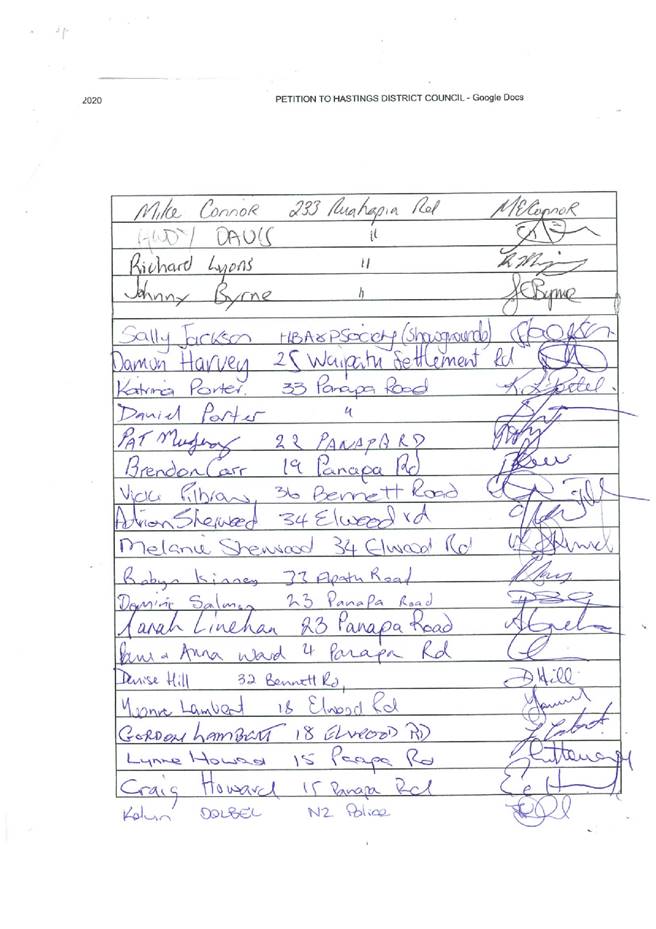 2020 PETITION TO HASTINGS DISTRICT COUNCIL - Google Docs
Mike Connor 233 Ruahapia Rd MEConnor
ANDY DAVIS "
Richard Lyons "
Johnny Byrne " JCByrne
Sally Jackson HBA&PSociety (showgrounds)
Damon Harvey 25 Waipatu Settlement Rd
Katrina Porter. 33 Panapa Road
Daniel Porter "
PAT 22 PANAPA RD
Brendon Carr 19 Panapa Rd
Vicki 36 Bennett Road
Adrion Sherwood 34 Elwood rd
Melanie Sherwood 34 Elwood Rd
Robyn 33 Road
Dominic Salmon 23 Panapa Road
Sarah Linehan 23 Panapa Road
& Anna Ward 4 Panapa Rd
Denise Hill 32 Bennett Rd, DHill
Yvonne Lambert 18 Elwood Rd
GORDON LAMBERT 18 ELWOOD RD
Lynne Howard 15 Paapa Rd
Craig Howard 15 Panapa Rd
Kelvin DOLBEL NZ Police